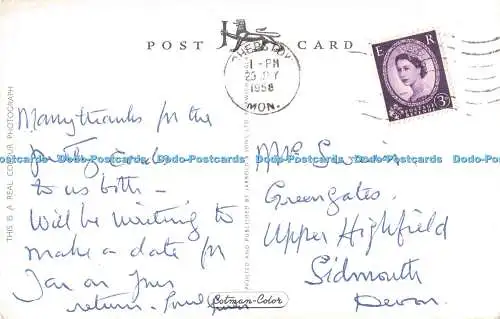 POST CARD
CHEPSTOW
1 - PM
1958
MON.
E R
3D
POSTAGE REVENUE
THIS IS A REAL COLOUR PHOTOGRAPH
Many thanks for the
pretty Cards
to us both –
Will be writing to
make a date for
Jan on your
return.
PRINTED AND PUBLISHED BY JARROLD & SONS LTD. NORWICH
Cotman-Color
Greengates.
Upper Highfield
Sidmouth
Devon.
Dodo-Postcards Dodo-Postcards Dodo-Postcards Dodo-Postcards Dodo-Postcards